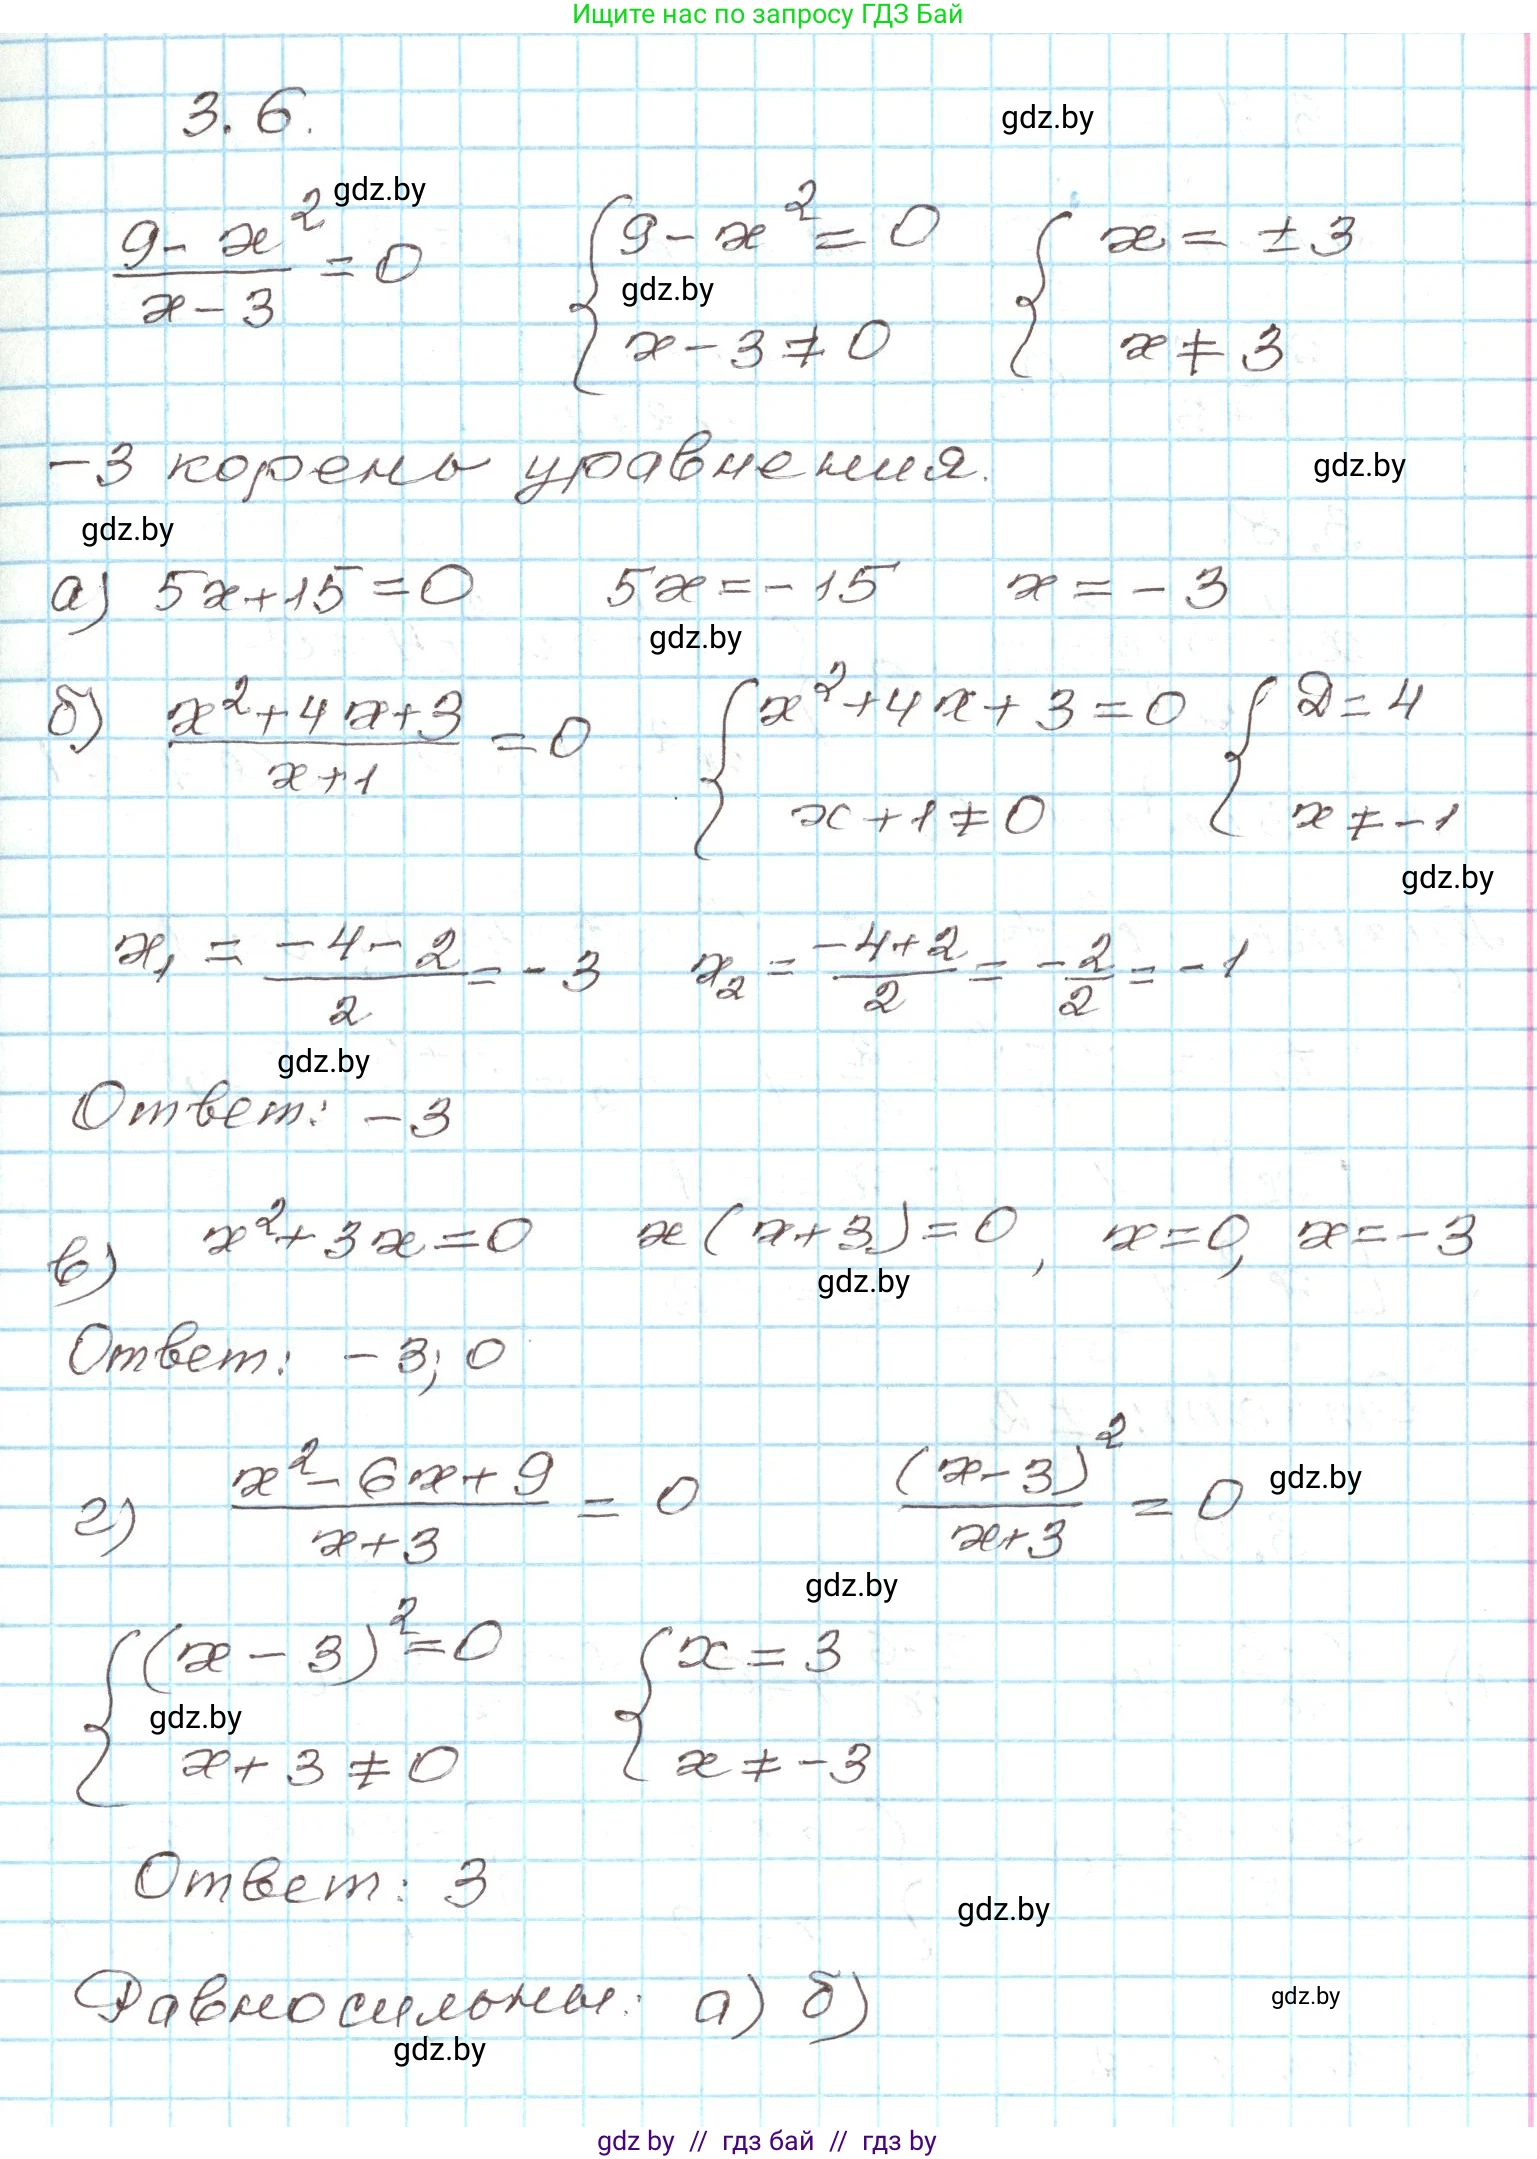 Ищите нас по запросу ГДЗ Бай
3.6.
gdz.by
gdz.by
(9 - x²)/(x - 3) = 0 { 9 - x² = 0 { x = ± 3
gdz.by
x - 3 ≠ 0 x ≠ 3
-3 корень уравнения.
gdz.by
gdz.by
а) 5x + 15 = 0 5x = - 15 x = - 3
gdz.by
б) (x² + 4x + 3)/(x + 1) = 0 { x² + 4x + 3 = 0 { D = 4
x + 1 ≠ 0 x ≠ - 1
gdz.by
x₁ = (-4 - 2)/2 = - 3 x₂ = (-4 + 2)/2 = - 2/2 = - 1
gdz.by
Ответ: - 3
в) x² + 3x = 0 x (x + 3) = 0, x = 0, x = - 3
gdz.by
Ответ: - 3; 0
г) (x² - 6x + 9)/(x + 3) = 0 (x - 3)²/(x + 3) = 0
gdz.by
gdz.by
{ (x - 3)² = 0 { x = 3
gdz.by
x + 3 ≠ 0 x ≠ - 3
Ответ: 3
gdz.by
Равносильны: а) б)
gdz.by
gdz.by
gdz by // гдз бай // гдз by